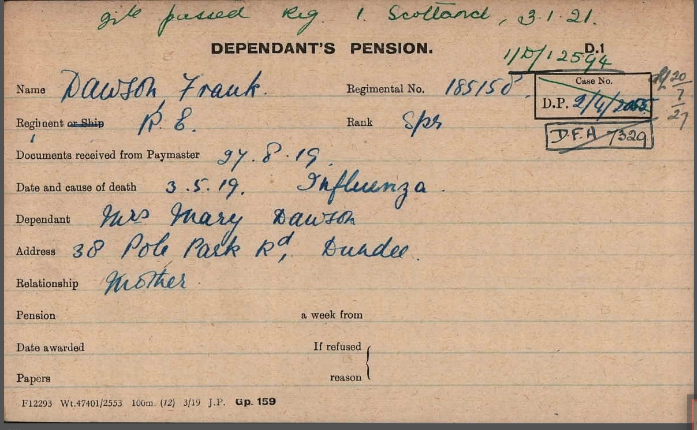 file passed Reg. 1. Scotland, 3.1.21.
DEPENDANT'S PENSION. D.1
1/D/12594
Name Dawson, Frank. Regimental No. 185150
Case No.
D.P. 2/4/
20/7/27
Regiment or Ship R.E. Rank Spr
D.F.A 7329
Documents received from Paymaster 27.8.19.
Date and cause of death 3.5.19. Influenza.
Dependant Mrs Mary Dawson
Address 38 Pole Park Rd, Dundee.
Relationship Mother.
Pension a week from
Date awarded If refused
Papers reason
F12293 Wt.47401/2553 100m. (12) 3/19 J.P. Gp. 159